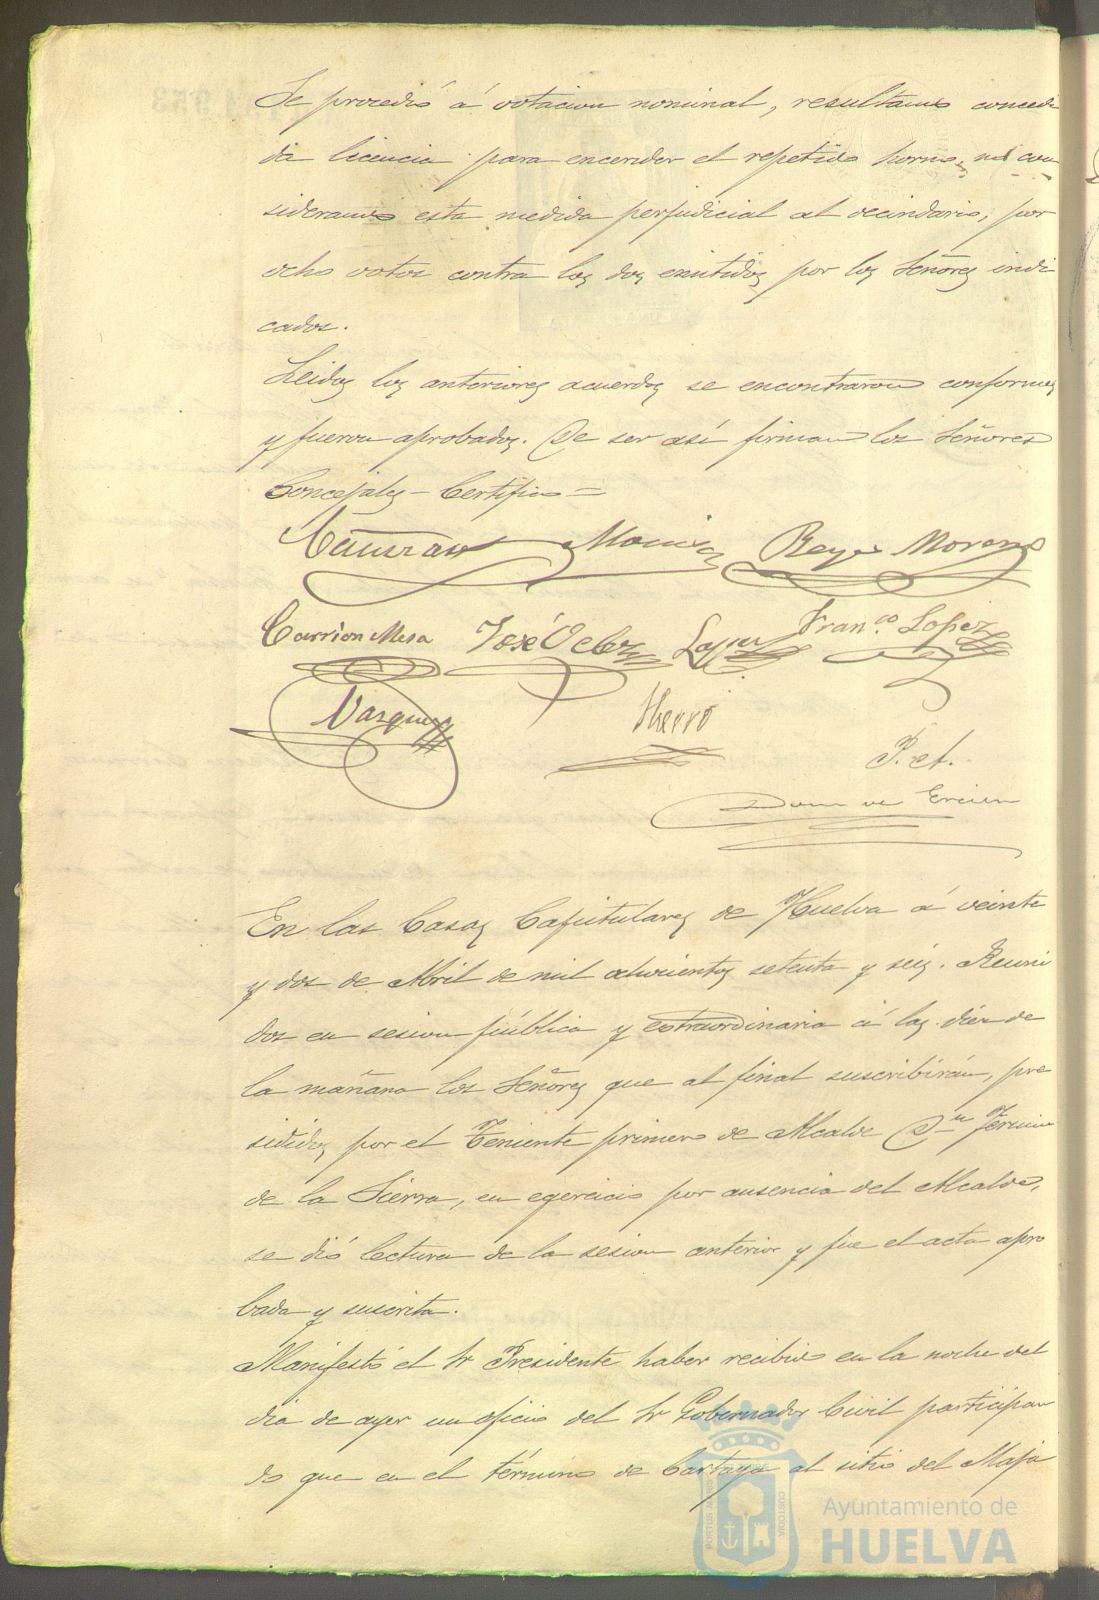 Se procedió á votacion nominal, resultando concedi
da licencia para encender el repetido horno, no con
siderando esta medida perjudicial al vecindario, por
ocho votos contra los dos emitidos por los Señores indi
cados.
Leidos los anteriores acuerdos se encontraron conformes
y fueron aprobados. De ser así firman los Señores
Concejales - Certifico =
Reyes Moreno
Carrion Mesa José Velez Lopez Fran.co Lopez
Vazquez Hierro
P. A.
En las Casas Capitulares de Huelva á veinte
y dos de Abril de mil ochocientos setenta y seis. Reuni
dos en sesion pública y extraordinaria á las diez de
la mañana los Señores que al final suscribirán, pre
sididos por el Teniente primero de Alcalde Dn Fermin
de la Sierra, en egercicio por ausencia del Alcalde,
se dió lectura de la sesion anterior y fue el acta apro
bada y suscrita.
Manifestó el Sr Presidente haber recibido en la noche del
dia de ayer un oficio del Sr Gobernador Civil participan
do que en el término de Cartaya al sitio del Maja
PORTUS MARIS
CUSTODIA
Ayuntamiento de
HUELVA